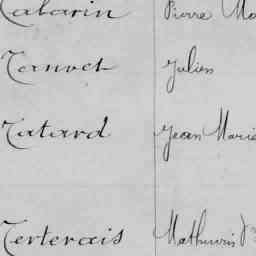 Tatarin Pierre Ma
Tanvet Julien
Tatard Jean Marie
Terterais Mathurin